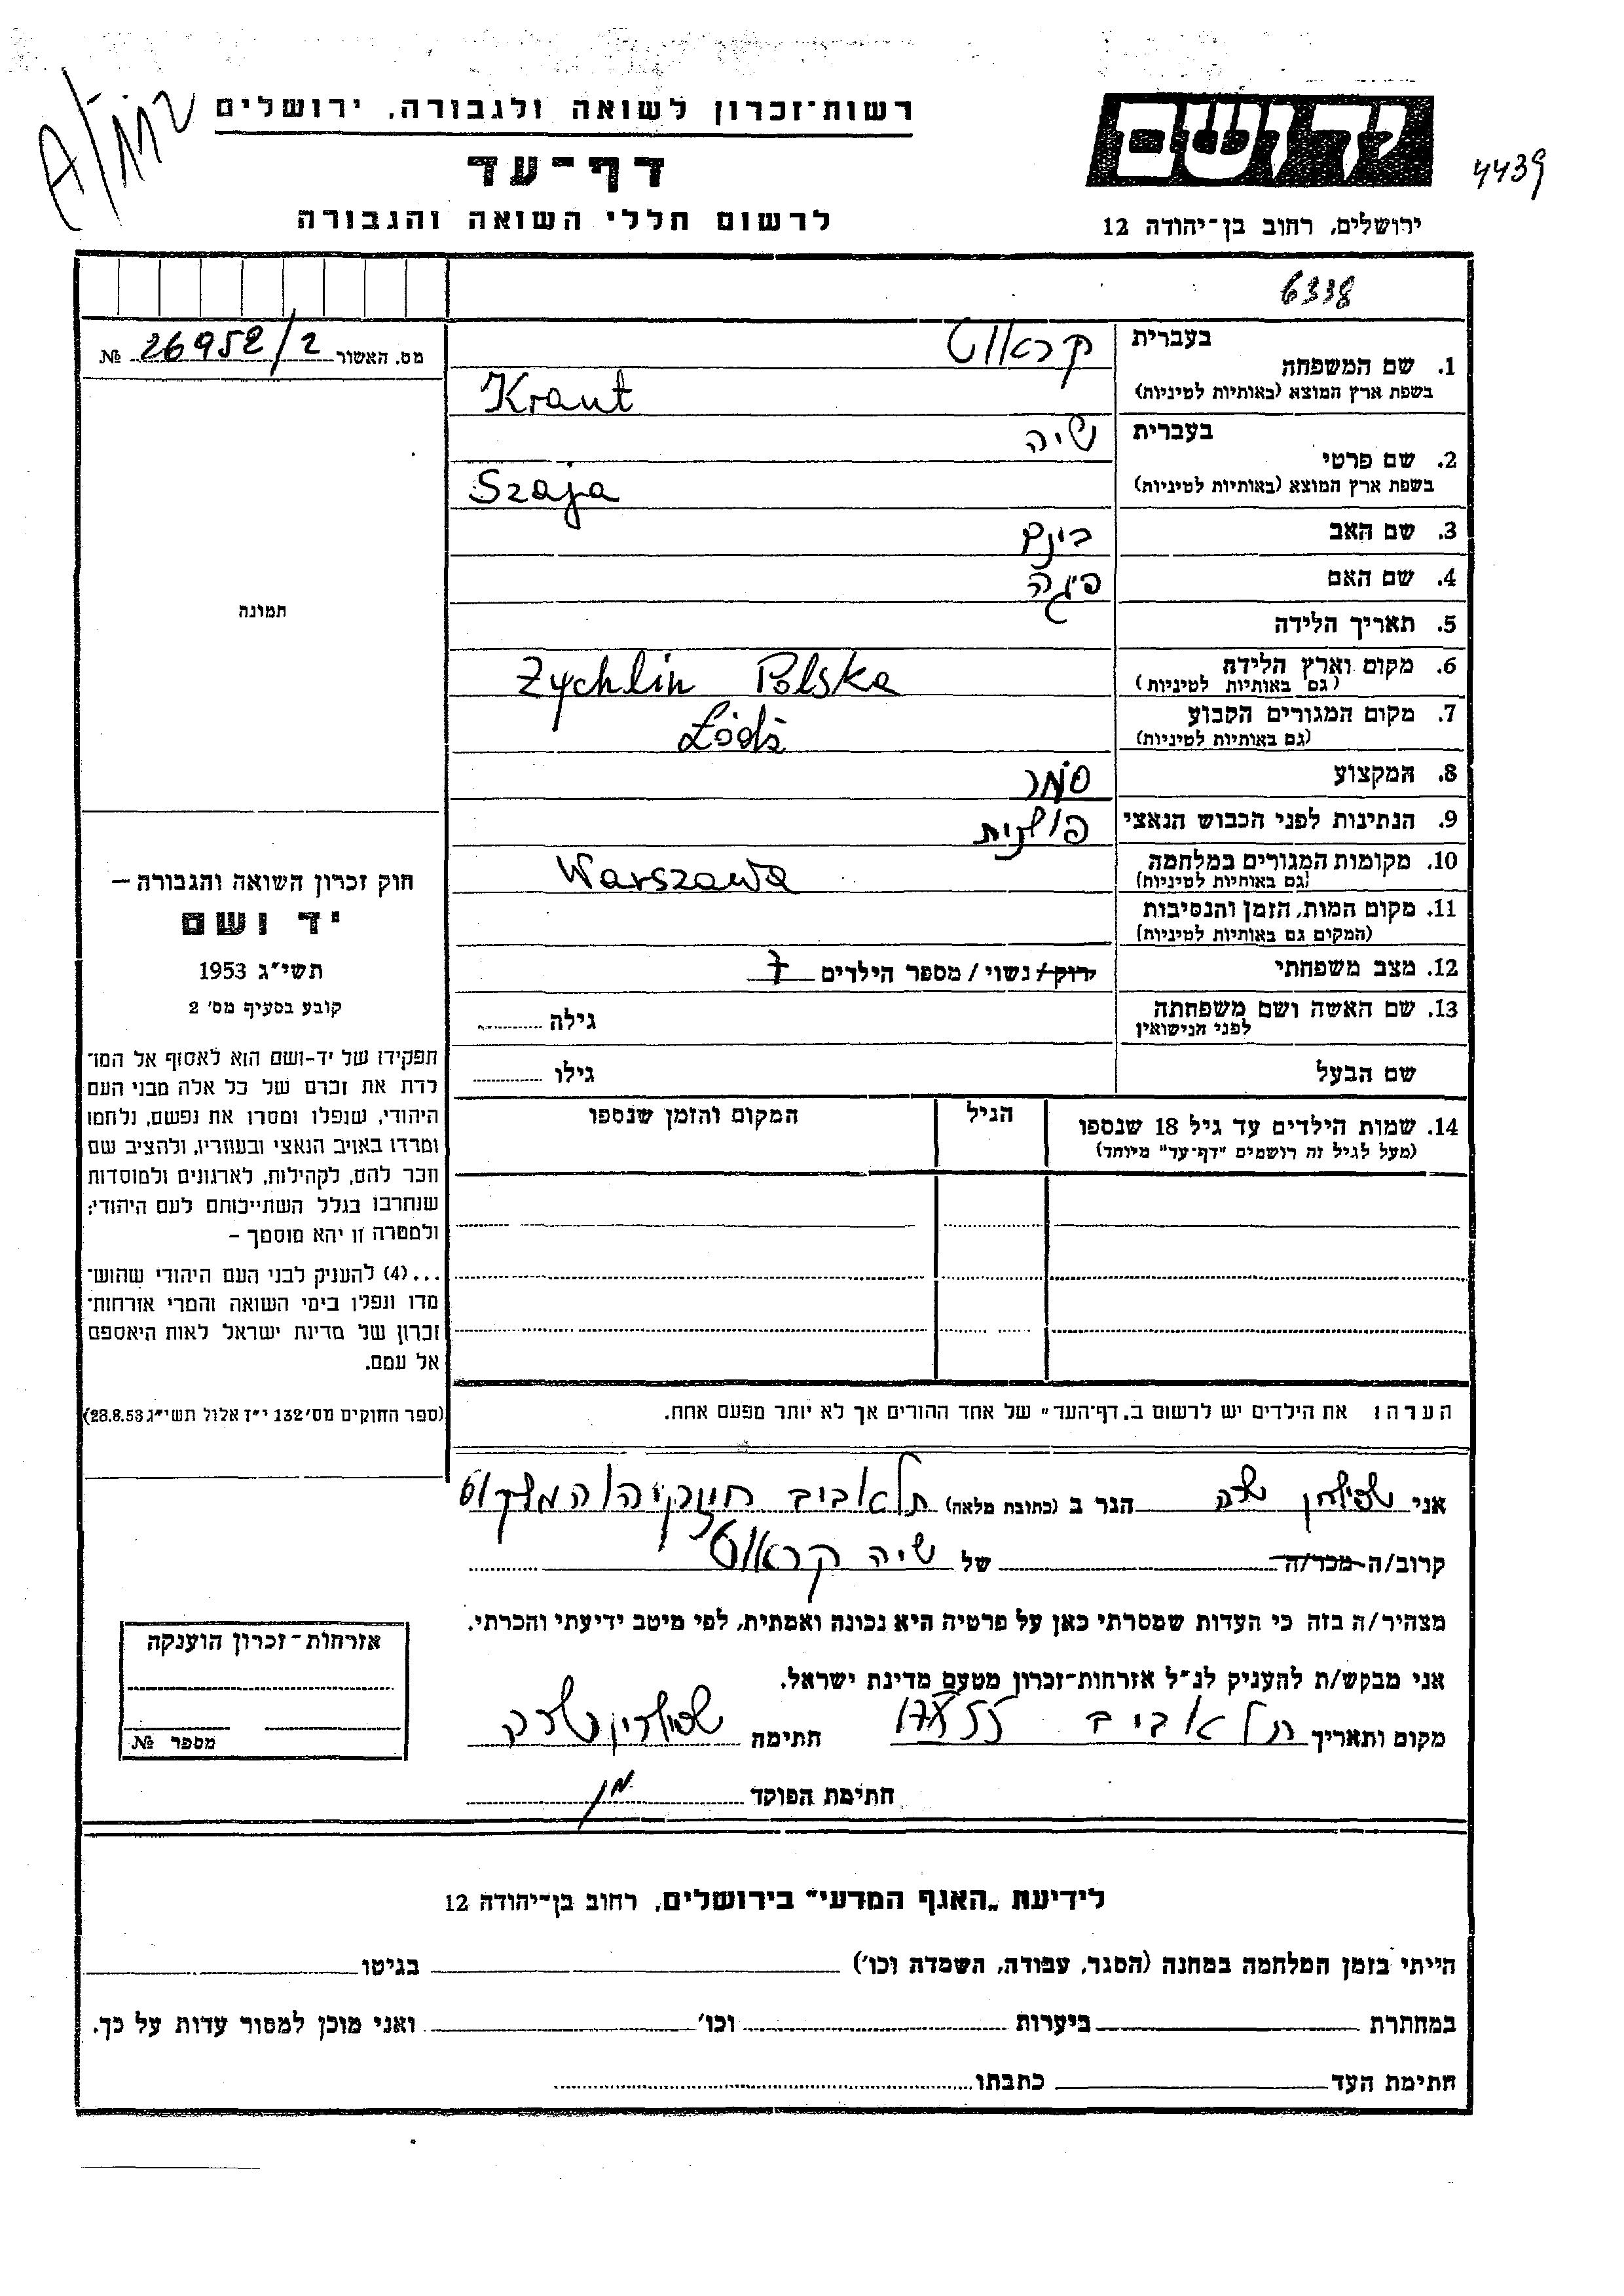 רשות־זכרון לשואה ולגבורה, ירושלים
דף־עד
לרשום חללי השואה והגבורה
ידושם
4439
ירושלים, רחוב בן־יהודה 12
6338
מס. האשור № 26952/2
1. שם המשפחה
בעברית קראוט
בשפת ארץ המוצא (באותיות לטיניות) Kraut
2. שם פרטי
בעברית שיה
בשפת ארץ המוצא (באותיות לטיניות) Szaja
3. שם האב בינם
4. שם האם פיגה
5. תאריך הלידה
6. מקום וארץ הלידה Zychlin Polska
(גם באותיות לטיניות)
7. מקום המגורים הקבוע Łódź
(גם באותיות לטיניות)
8. המקצוע סוחר
9. הנתינות לפני הכבוש הנאצי פולנית
10. מקומות המגורים במלחמה Warszawa
(גם באותיות לטיניות)
11. מקום המות, הזמן והנסיבות
(המקום גם באותיות לטיניות)
12. מצב משפחתי רוק/נשוי/מספר הילדים 7
13. שם האשה ושם משפחתה גילה
לפני הנישואין
שם הבעל גילו
14. שמות הילדים עד גיל 18 שנספו הגיל המקום והזמן שנספו
(מעל לגיל זה רושמים "דף־עד" מיוחד)
הערה: את הילדים יש לרשום ב„דף־העד" של אחד ההורים אך לא יותר מפעם אחת.
תמונה
חוק זכרון השואה והגבורה –
יד ושם
תשי״ג 1953
קובע בסעיף מס׳ 2
תפקידו של יד-ושם הוא לאסוף אל המו־
לדת את זכרם של כל אלה מבני העם
היהודי, שנפלו ומסרו את נפשם, נלחמו
ומרדו באויב הנאצי ובעוזריו, ולהציב שם
וזכר להם, לקהילות, לארגונים ולמוסדות
שנחרבו בגלל השתייכותם לעם היהודי;
ולמטרה זו יהא מוסמך –
...(4) להעניק לבני העם היהודי שהוש־
מדו ונפלו בימי השואה והמרי אזרחות־
זכרון של מדינת ישראל לאות היאספם
אל עמם.
(ספר החוקים מס׳ 132 י״ז אלול תשי״ג 28.8.53)
אני הגר ב (כתובת מלאה) תל אביב
קרוב/ה מכר/ה של שיה קראוט
מצהיר/ה בזה כי העדות שמסרתי כאן על פרטיה היא נכונה ואמתית, לפי מיטב ידיעתי והכרתי.
אני מבקש/ת להעניק לנ״ל אזרחות־זכרון מטעם מדינת ישראל.
מקום ותאריך תל אביב 17 X 55 חתימה
חתימת הפוקד
אזרחות־זכרון הוענקה
מספר №
לידיעת „האגף המדעי" בירושלים, רחוב בן־יהודה 12
הייתי בזמן המלחמה במחנה (הסגר, עבודה, השמדה וכו׳) בגיטו
במחתרת ביערות וכו׳ ואני מוכן למסור עדות על כך.
חתימת העד כתבתו